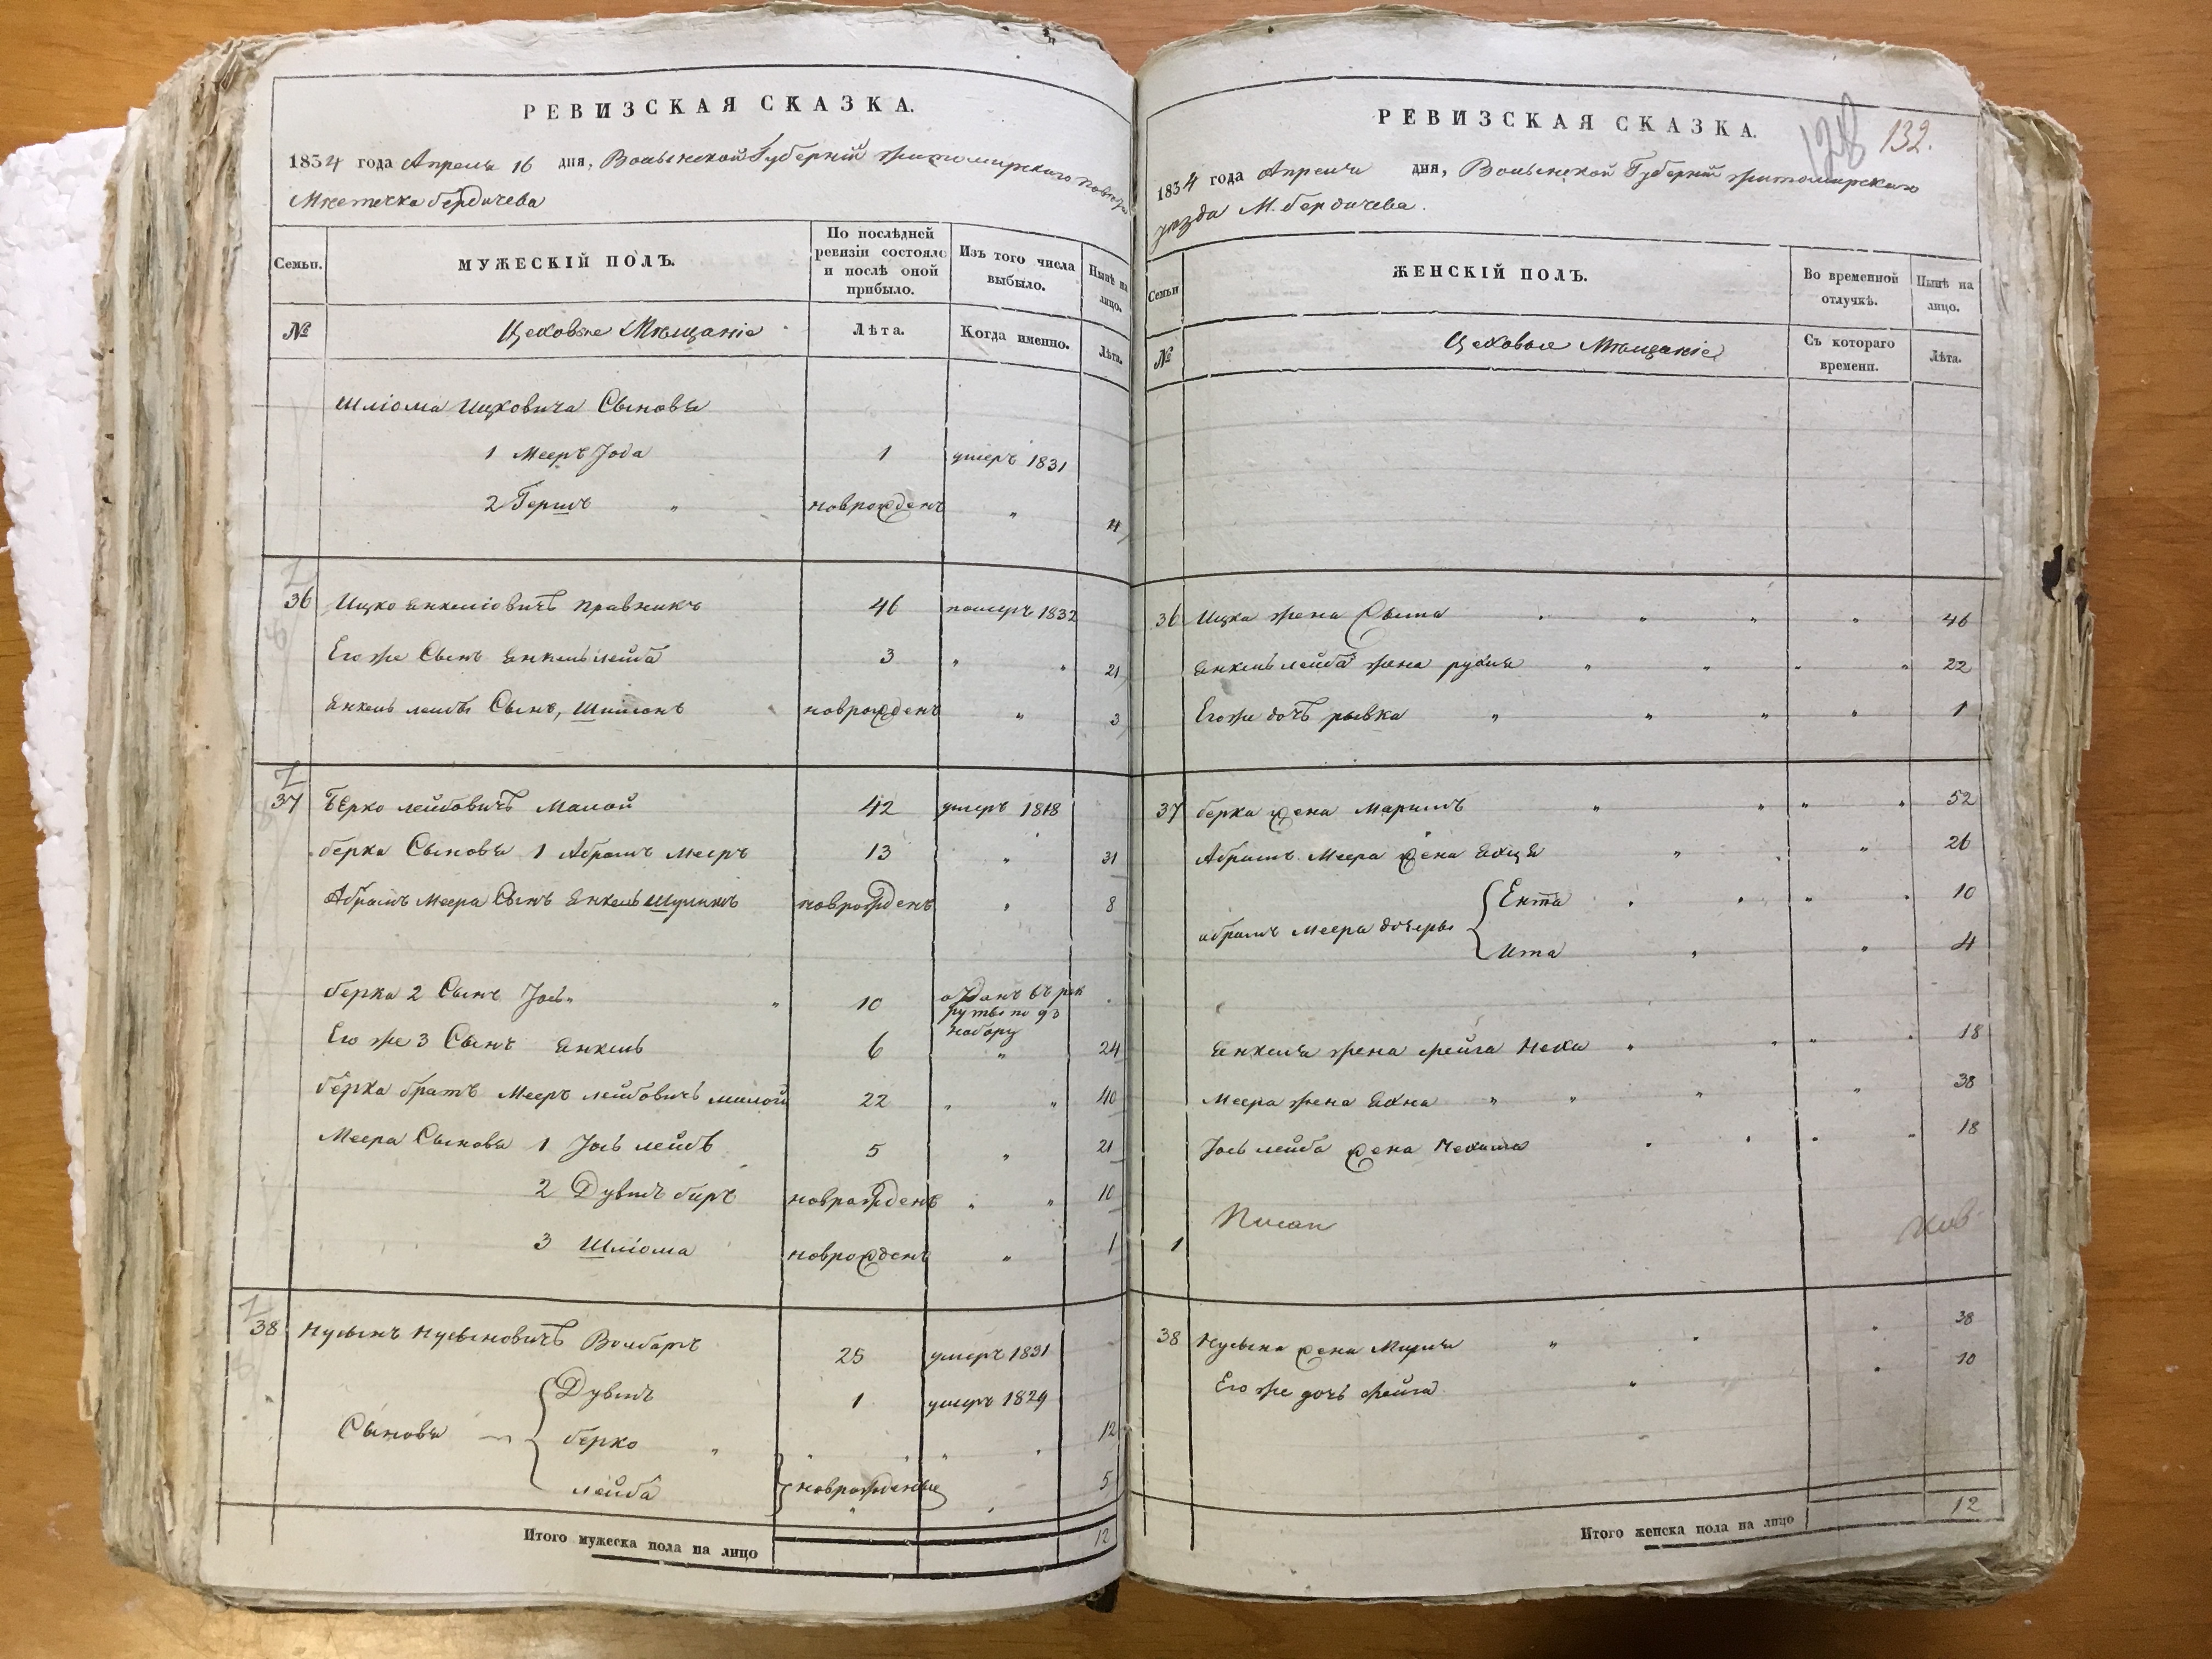 РЕВИЗСКАЯ СКАЗКА.
1834 года Апреля 16 дня, Волынской Губернiи Житомирского Повета
Местечка бердичева
Семьи. МУЖЕСКIЙ ПОЛЪ. По послѣдней ревизiи состояло и послѣ оной прибыло. Изъ того числа выбыло. Нынѣ на лицо.
№ Цеховые Мѣщанiе Лѣта. Когда именно. Лѣта.
Шлiома Ицковича Сыновья
1 Мееръ Iода 1 умеръ 1831
2 Гершъ " новрожденъ " 4
36 Ицко Янкелiовичъ Правникъ 46 померъ 1832
Его же Сынъ Янкель лейба 3 " " 21
Янкель лейбы Сынъ, Шимонъ новрожденъ " 3
37 Берко лейбовичъ Малой 42 умеръ 1818
берка Сыновья 1 Абрамъ Мееръ 13 " 31
Абрамъ Меера Сынъ Янкель Шулимъ новрожденъ " 8
берка 2 Сынъ Iось " 10 отданъ въ рек
руты по 93
набору
Его же 3 Сынъ Янкель 6 " 24
берка братъ Мееръ лейбовичъ малой 22 " " 40
Меера Сыновья 1 Iось лейбъ 5 " 21
2 Дувидъ беръ новрожденъ " " 10
3 Шлiома новрожденъ " 1
38 Нусынъ Нусыновичъ 25 умеръ 1831
Дувидъ 1 умеръ 1829
Сыновья берко " " " " " 12
лейба новрожденые 5
Итого мужеска пола на лицо 12
РЕВИЗСКАЯ СКАЗКА.
128 132.
1834 года Апреля дня, Волынской Губернiи Житомирского
уезда М. бердичева.
Семьи ЖЕНСКIЙ ПОЛЪ. Во временной отлучкѣ. Нынѣ на лицо.
№ Цеховые Мѣщанiе Съ котораго времени. Лѣта.
36 Ицка жена Сыма " " " " 46
Янкель лейба жена рухля " " " " 22
Его же дочь рывка " " " " 1
37 берка жена Маримъ " " " " 52
Абрамъ Меера жена " " " 26
абрамъ Меера дочеры Ента " " " " 10
Ита " " 4
Янкеля жена фейга Неха " " " " 18
Меера жена Яхна " " " " 38
Iось лейба жена Нехама " " " " 18
1
38 Нусына жена Мирля " " " 38
Его же дочь фейга " " 10
Итого женска пола на лицо 12